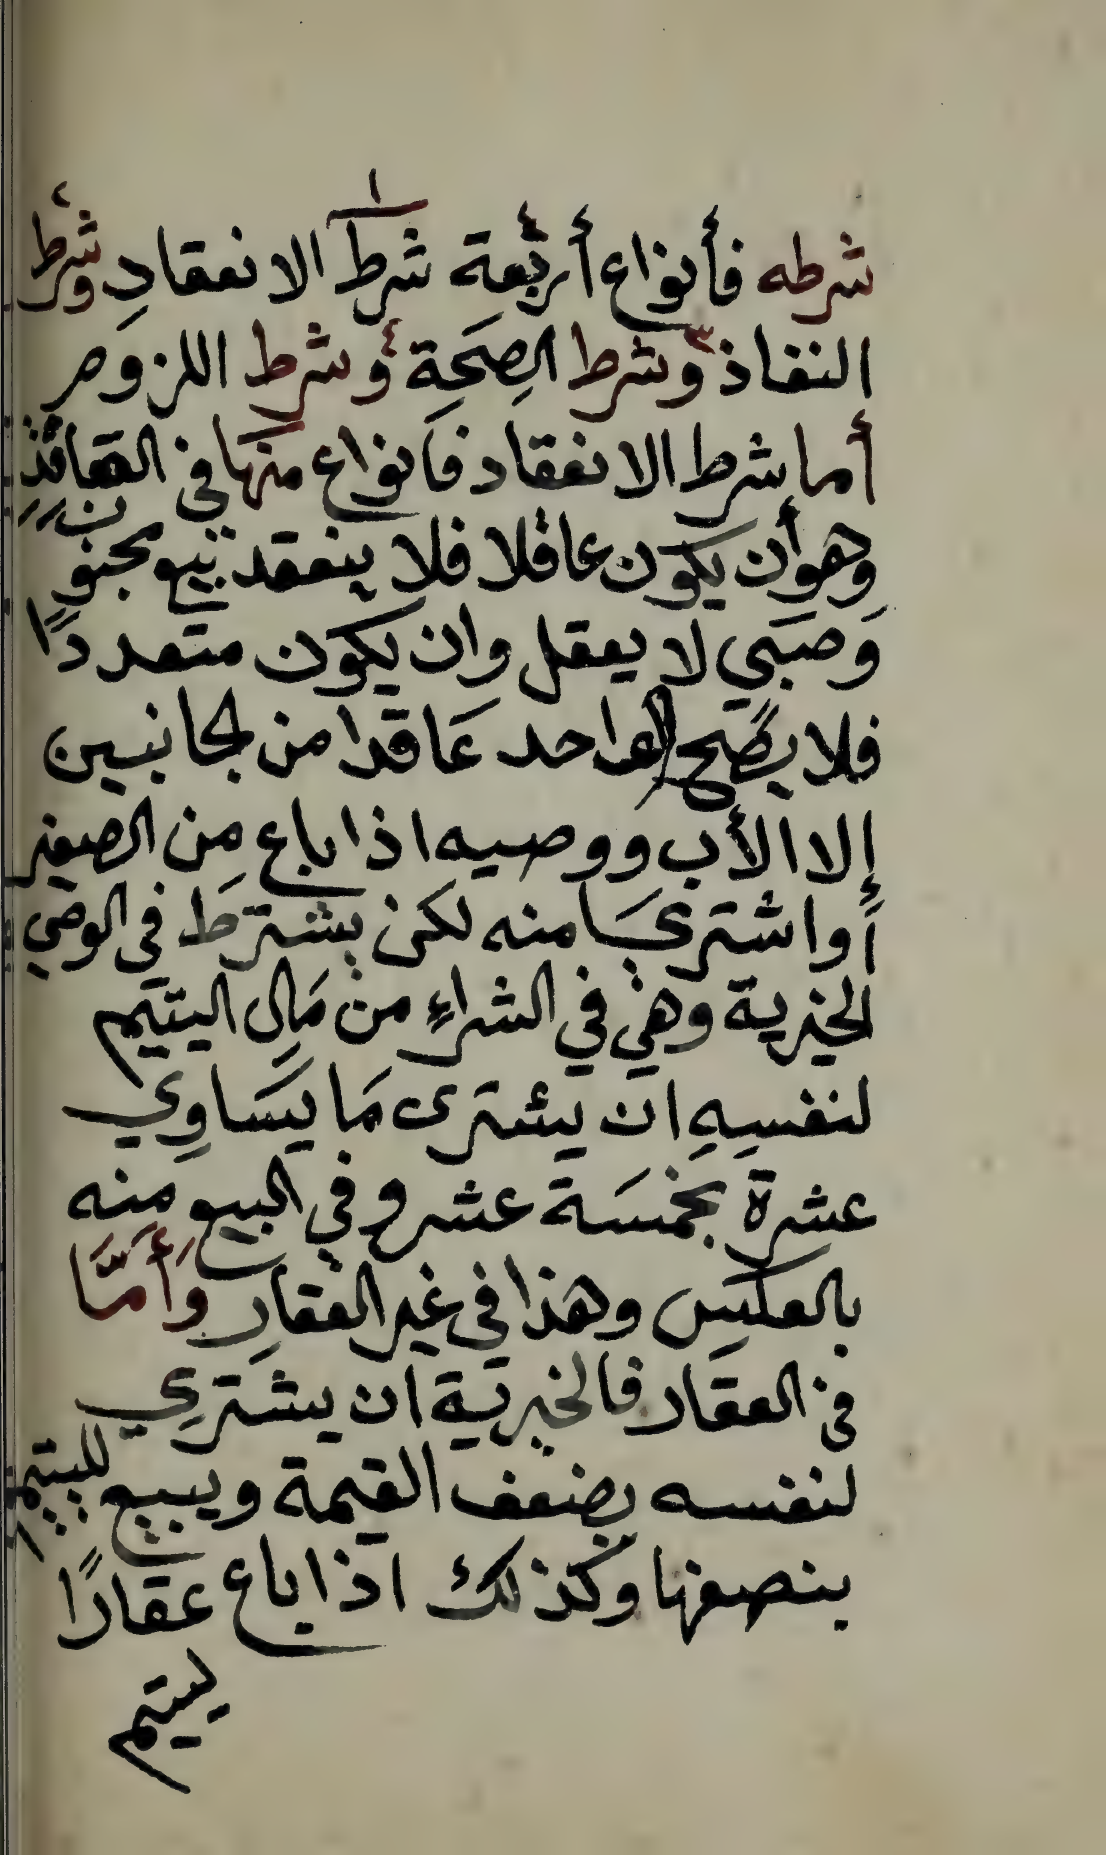 شرطه فأنواع أربعة شرط الانعقادِ وشرط
النفاذ وشرط الصِحَة وشرط اللزوم
أما شرط الانعقاد فأنواع منها في العاقد
وهو أن يكون عاقلا فلا ينعقد بيع مجنون
وَصبي لا يعقل وان يكون متعددًا
فلا يصح الواحد عَاقدا من الجانبين
إلا الأب ووصيه اذا باع من الصغير
أو اشتري منه لكن يشترط في الوصي
الخيرية وهي في الشراءِ من مَالِ اليتيم
لنفسِهِ ان يشترى مَا يسَاوِي
عشرة بخمسَة عشر وفي البيع منه
بالعكسِ وهذا في غير العقارِ وَأَمَّا
في العقار فالخيرية ان يشتري
لنفسه بضعف القيمة ويبيع لليتيم
بنصفها وكذلك اذا باع عقارًا
ليتيم